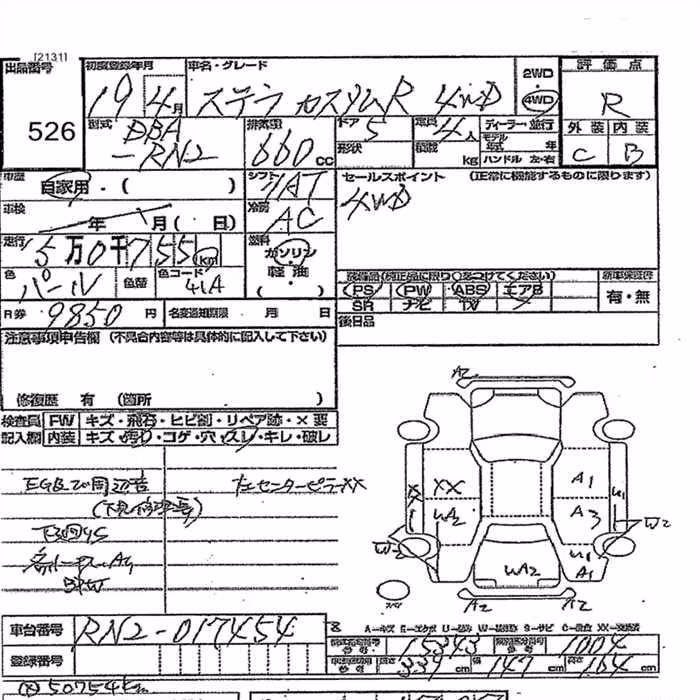 [2131]
出品番号 初度登録年月 車名・グレード 2WD 評価点
526 19 4月 ステラ カスタムR 4WD 4WD R
型式 DBA-RN2 排気量 660cc ドア 5 定員 4人 ディーラー・並行 外装 内装
形状 積載 kg モデル年式 年 ハンドル 左・右 C B
車歴 自家用・( ) シフト AT セールスポイント (正常に機能するものに限ります)
車検 年 月( 日) 冷房 AC 4WD
走行 5万0千755km 燃料 ガソリン 軽・油 ・( )
色 パール 色替 色コード 41A 装備品(純正品に限り○をつけてください) 新車保証書
PS PW ABS エアB 有・無
SR ナビ TV
R券 9850円 名変通知期限 月 日 後日品
注意事項申告欄(不具合内容等は具体的に記入して下さい)
修復歴 有 (箇所 )
検査員 FW キズ・飛石・ヒビ割・リペア跡・×要
記入欄 内装 キズ・汚れ・コゲ・穴・スレ・キレ・破レ
EG及び周辺音 左センターピラーXX
下回りS
A2
XX A1
UA2 A3 U1
W2 W2
U1
UA2 A1
A2 A2
車台番号 RN2-017454
A-キズ E-エクボ U-凹み W-補修跡 S-サビ C-腐食 XX-交換済
15343 1004
登録番号 長さ 339cm 幅 147cm 高さ 164cm
50754km